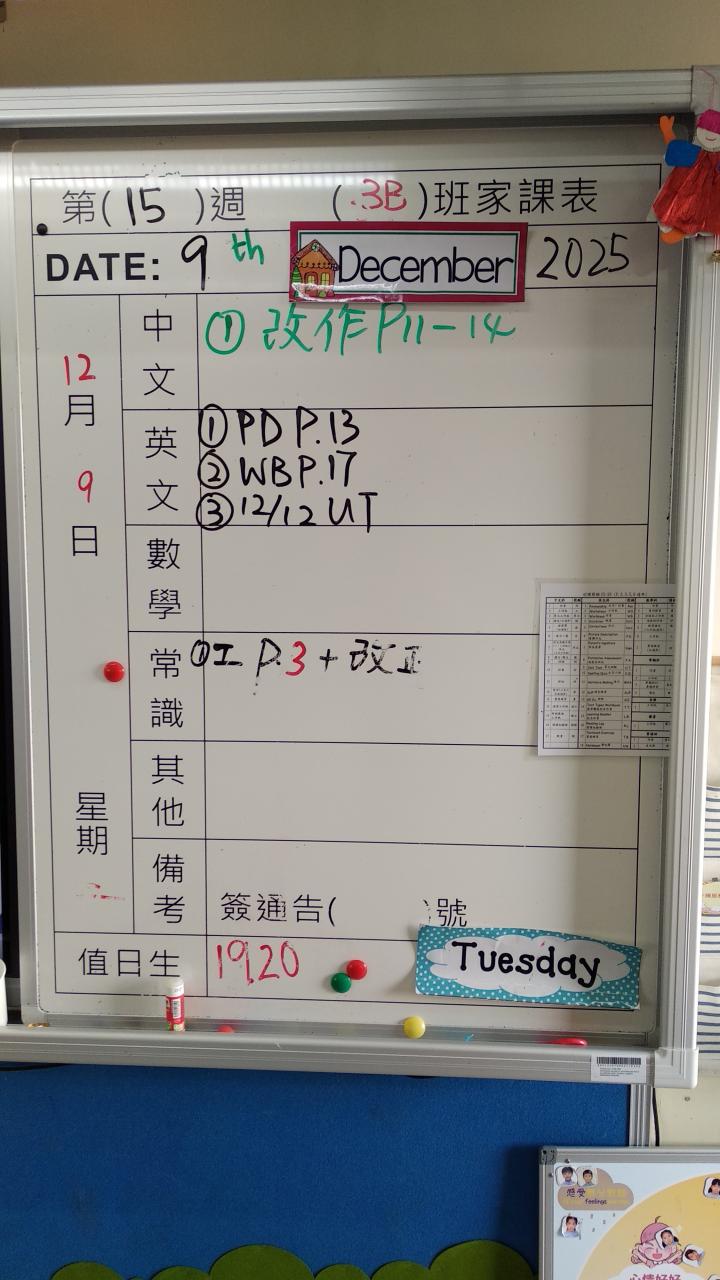 第(15)週 (3B)班家課表
DATE: 9th December 2025
12月9日 星期二
中文
① 改作P11-14
英文
① PD P.13
② WB P.17
③ 12/12 UT
數學
常識
①工 P.3 + 改正
其他
備考
簽通告( )號
值日生
19,20
Tuesday
感受
feelings
心情好好